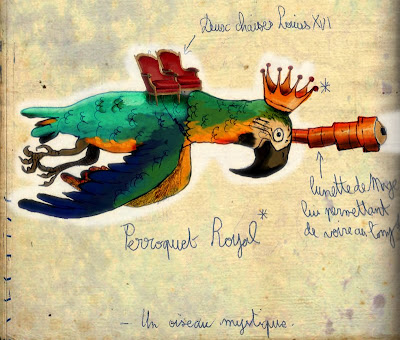 Deux chaises Louis XVI
*
lunette de Mage
lui permettant
de voire au long
Perroquet Royal*
- Un oiseau mystique.